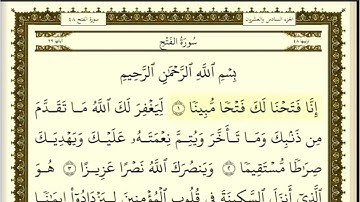 الجزء السادس والعشرون
سورة الفتح ٤٨
سُورَةُ الفَتْحِ
بِسْمِ اللَّهِ الرَّحْمَٰنِ الرَّحِيمِ
إِنَّا فَتَحْنَا لَكَ فَتْحًا مُّبِينًا ١ لِّيَغْفِرَ لَكَ اللَّهُ مَا تَقَدَّمَ
مِن ذَنبِكَ وَمَا تَأَخَّرَ وَيُتِمَّ نِعْمَتَهُ عَلَيْكَ وَيَهْدِيَكَ
صِرَاطًا مُّسْتَقِيمًا ٢ وَيَنصُرَكَ اللَّهُ نَصْرًا عَزِيزًا ٣ هُوَ
الَّذِي أَنزَلَ السَّكِينَةَ فِي قُلُوبِ الْمُؤْمِنِينَ لِيَزْدَادُوا إِيمَانًا